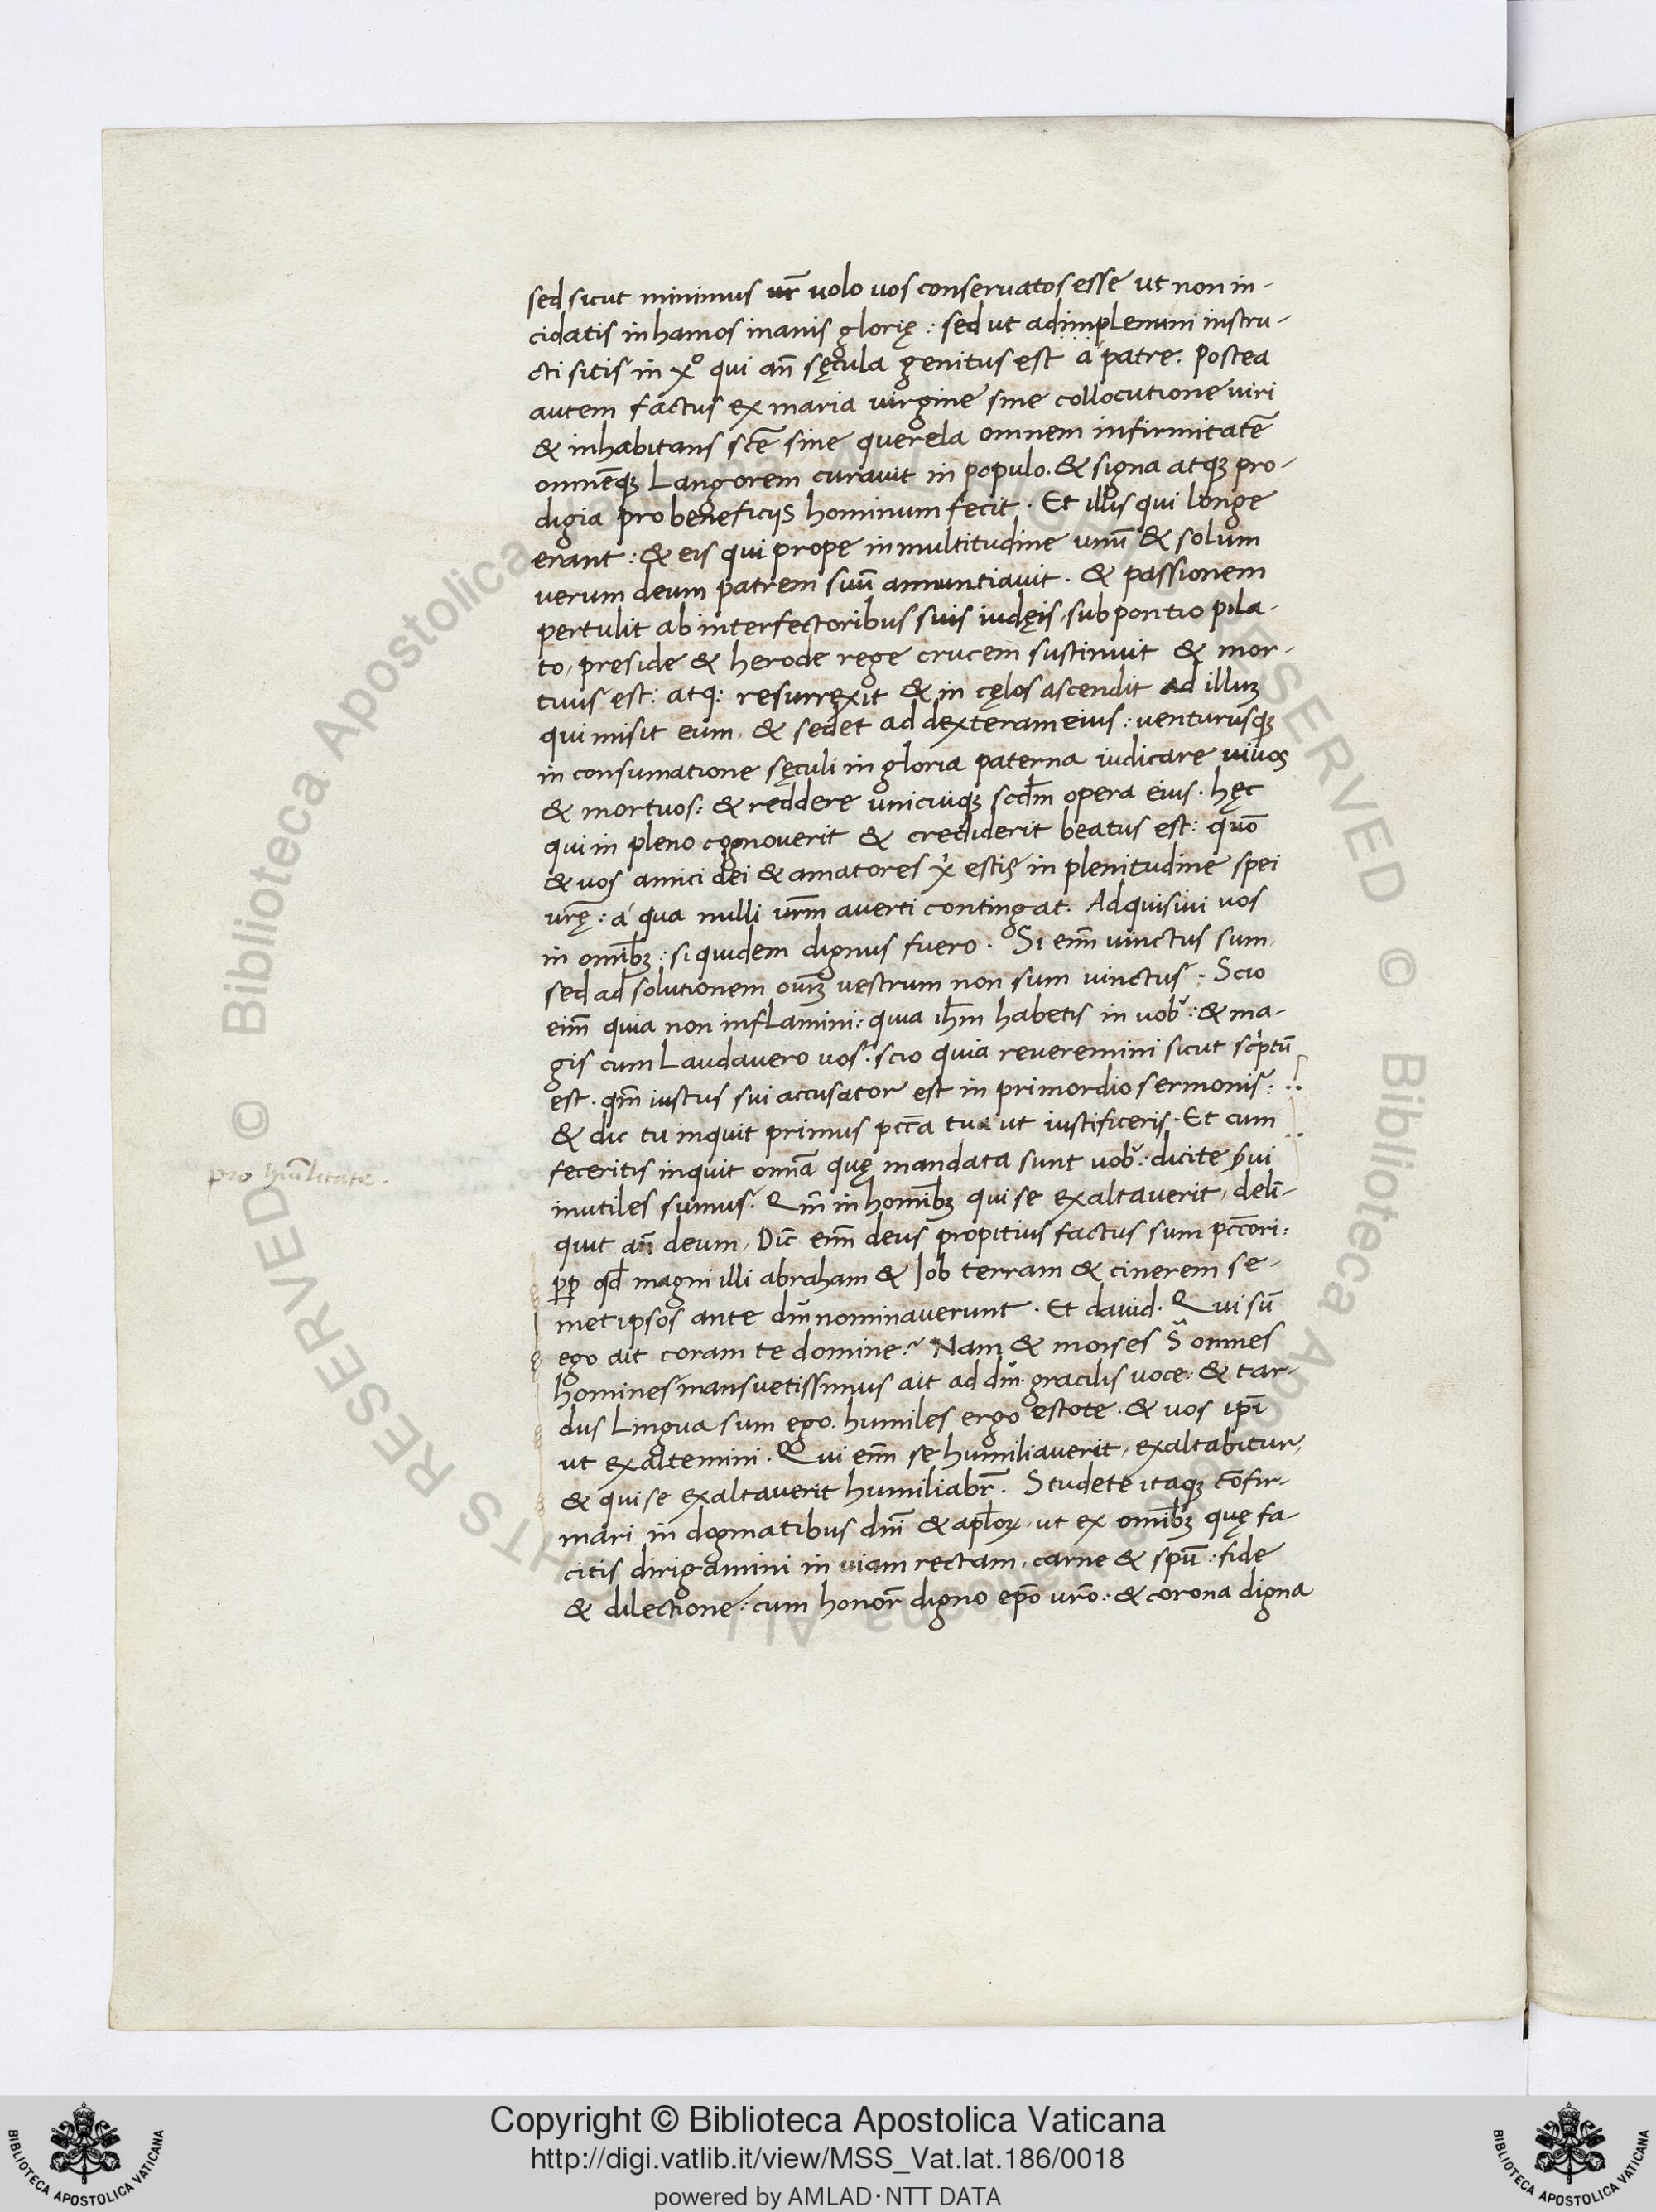 sed sicut minimus ur̄ uolo uos conseruatos esse ut non in-
cidatis in hamos inanis glorię: sed ut adimplenum instru-
cti sitis in xº qui an̄ sęcula genitus est á patre. Postea
autem factus ex maria uirgine sine collocutione uiri
& inhabitans sctē sine querela omnem infirmitatē
omnēqꝫ Langorem curauit in populo. & signa atqꝫ pro-
digia pro beneficijs hominum fecit. Et illis qui longe
erant: & eis qui prope in multitudine unū & solum
uerum deum patrem suū annuntiauit. & passionem
pertulit ab interfectoribus suis iudęis, sub pontio pila-
to, preside & herode rege crucem sustinuit & mor-
tuus est: atq: resurrexit & in cęlos ascendit ad illuꝫ
qui misit eum, & sedet ad dexteram eius: uenturusqꝫ
in consumatione sęculi in gloria paterna iudicare uiuos
& mortuos: & reddere unicuiqꝫ scdm̄ opera eius. hęc
qui in pleno cognouerit & crediderit beatus est: quō
& uos amici dei & amatores xi estis in plenitudine spei
ur̄ę: á qua nulli ur̄m auerti contingat. Adquisiui uos
in om̄ibꝫ: si quidem dignus fuero. Si enm̄ uinctus sum,
sed ad solutionem ouiꝫ uestrum non sum uinctus: Scio
eim̄ quia non inflamini: quia ih̄m habetis in uob: & ma-
gis cum Laudauero uos. scio quia reueremini sicut scͥptū
est. qm̄ iustus sui accusator est in primordio sermonis:
& dic tu inquit primus pcc̄a tua ut iustificeris. Et cum
feceritis inquit omn̄a quę mandata sunt uob: dicite ẜui
inutiles sumus. Qm̄ in homībꝫ qui se exaltauerit, delī-
quit an̄ deum, Dic̄ enm̄ deus propitius factus sum pcc̄ori:
pp̄ qđ magni illi abraham & Job terram & cinerem se-
metipsos ante dūm nominauerunt. Et dauid. Qui sū
ego ait coram te domine? Nam & moises S̄ omnes
homines mansuetissimus ait ad dm̄. gracilis uoce: & tar-
dus Lingua sum ego. humiles ergo estote. & uos ipi̅
ut exaltemini. Qui enm̄ se humiliauerit, exaltabitur,
& qui se exaltauerit humiliabr̄. Studete itaqꝫ cōfir-
mari in dogmatibus dn̄i & apl̄oꝝ, ut ex om̄ibꝫ quę fa-
citis dirigamini in uiam rectam, carne & spū: fide
& dilectione: cum honor̄ digno ep̄o ur̄o: & corona digna
pro hūilitate.
© Biblioteca Apostolica Vaticana ALL RIGHTS RESERVED
Copyright © Biblioteca Apostolica Vaticana
http://digi.vatlib.it/view/MSS_Vat.lat.186/0018
powered by AMLAD·NTT DATA
BIBLIOTECA APOSTOLICA VATICANA
BIBLIOTECA APOSTOLICA VATICANA